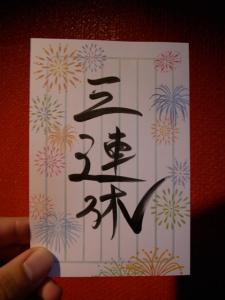 三連休